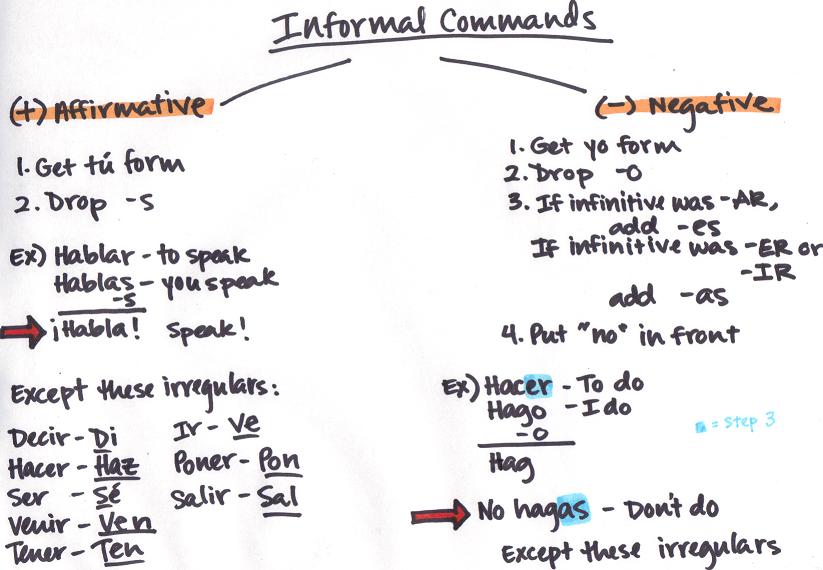 Informal Commands
(+) Affirmative
1. Get tú form
2. Drop -s
Ex) Hablar - to speak
Hablas - you speak
-s
¡Habla! Speak!
Except these irregulars:
Decir - Di
Hacer - Haz
Ser - Sé
Venir - Ven
Tener - Ten
Ir - Ve
Poner - Pon
Salir - Sal
(-) Negative
1. Get yo form
2. Drop -o
3. If infinitive was -AR,
add -es
If infinitive was -ER or
-IR
add -as
4. Put "no" in front
Ex) Hacer - To do
Hago - I do
-o
Hag
= Step 3
No hagas - Don't do
Except these irregulars